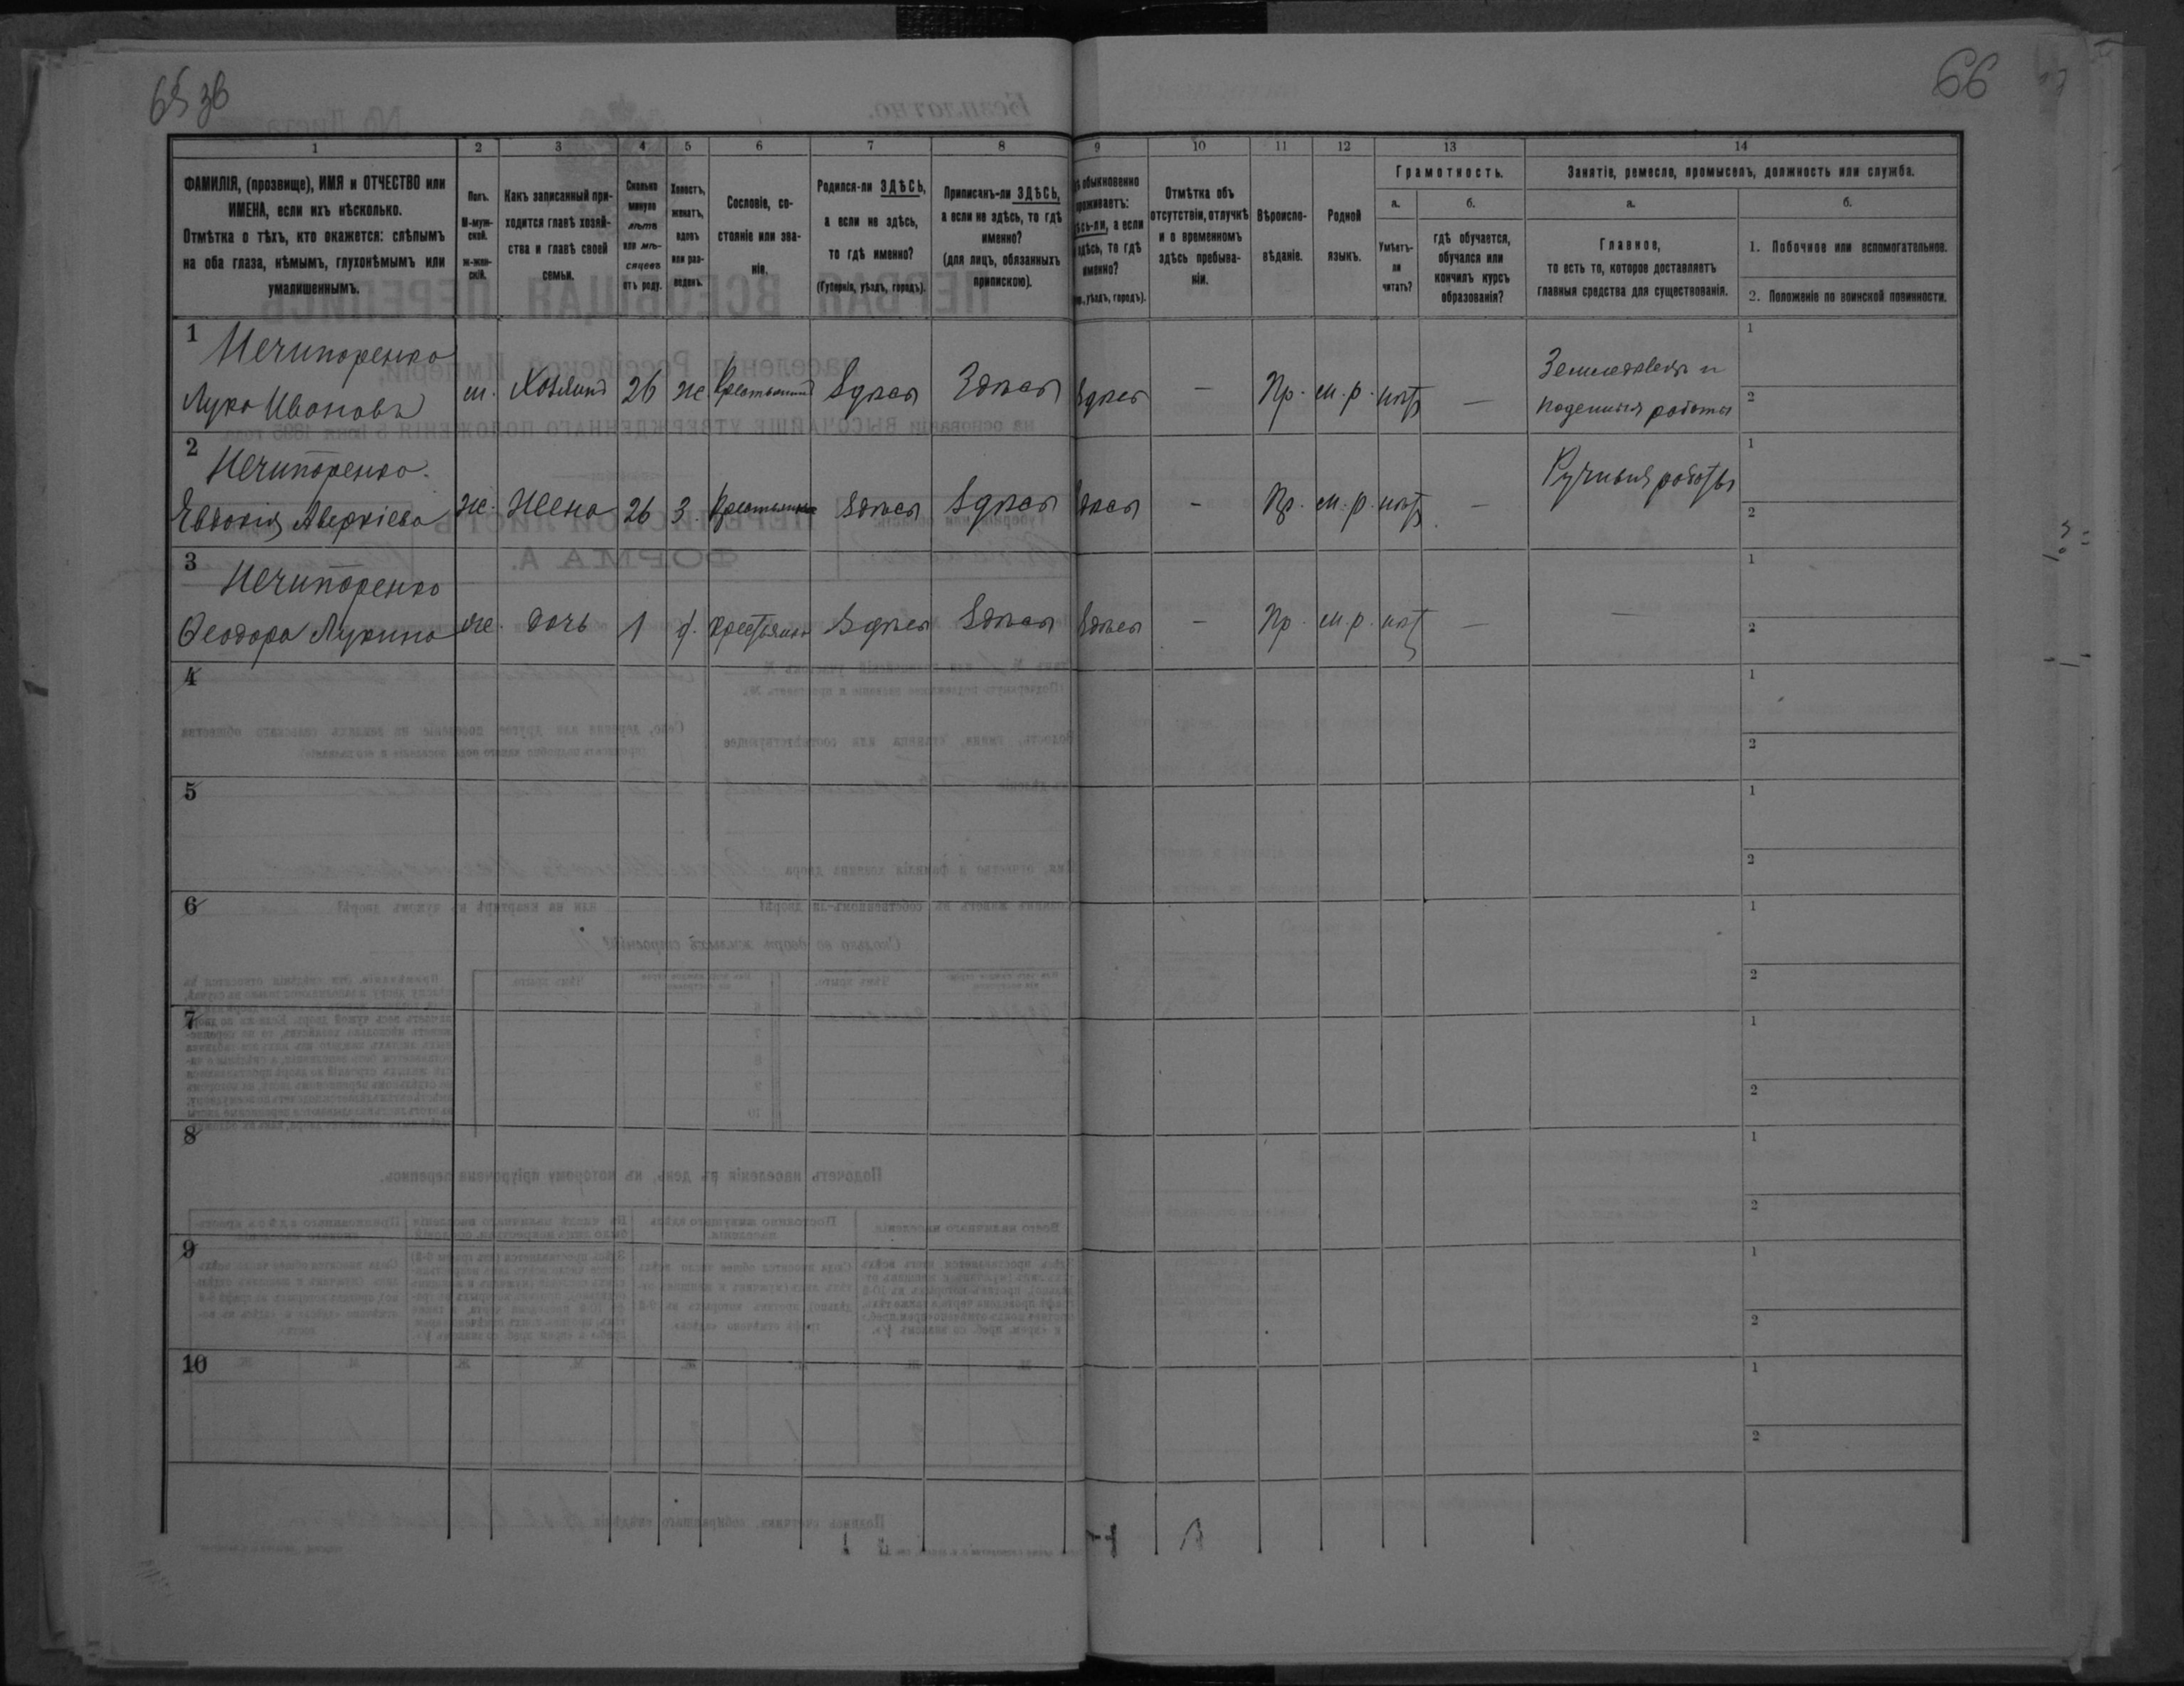 65 зв
66
1
2
3
4
5
6
7
8
9
10
11
12
13
14
ФАМИЛІЯ, (прозвище), ИМЯ и ОТЧЕСТВО или
ИМЕНА, если ихъ нѣсколько.
Отмѣтка о тѣхъ, кто окажется: слѣпымъ
на оба глаза, нѣмымъ, глухонѣмымъ или
умалишеннымъ.
Полъ.
М-муж-
ской.
ж-жен-
скій.
Какъ записанный при-
ходится главѣ хозяй-
ства и главѣ своей
семьи.
Сколько
минуло
лѣтъ
или мѣ-
сяцевъ
отъ роду.
Холостъ,
женатъ,
вдовъ
или раз-
веденъ.
Сословіе, со-
стояніе или зва-
ніе.
Родился-ли ЗДѢСЬ,
а если не здѣсь,
то гдѣ именно?
(Губернія, уѣздъ, городъ).
Приписанъ-ли ЗДѢСЬ,
а если не здѣсь, то гдѣ
именно?
(для лицъ, обязанныхъ
припискою).
обыкновенно
проживаетъ:
а если
здѣсь, то гдѣ
именно?
уѣздъ, городъ).
Отмѣтка объ
отсутствіи, отлучкѣ
и о временномъ
здѣсь пребыва-
ніи.
Вѣроиспо-
вѣданіе.
Родной
языкъ.
Грамотность.
а.
Умѣетъ-
ли
читать?
б.
гдѣ обучается,
обучался или
кончилъ курсъ
образованія?
Занятіе, ремесло, промыселъ, должность или служба.
а.
Главное,
то есть то, которое доставляетъ
главныя средства для существованія.
б.
1. Побочное или вспомогательное.
2. Положеніе по воинской повинности.
1
Нечипоренко
Лука Ивановъ
м. Хозяинъ 26 ж. Крестьянинъ Здѣсь Здѣсь Здѣсь — Пр. м. р. нѣтъ —
Земледѣлецъ и
поденныя работы
1
2
2
Нечипоренко
Евдокія Аверкіева
ж. Жена 26 з. Крестьянка Здѣсь Здѣсь Здѣсь — Пр. м. р. нѣтъ —
Ручныя работы
1
2
3
Нечипоренко
Ѳеодора Лукина
ж. дочь 1 д. Крестьянка Здѣсь Здѣсь Здѣсь — Пр. м. р. нѣтъ — —
1
2
4
1
2
5
1
2
6
1
2
7
1
2
8
1
2
9
1
2
10
1
2